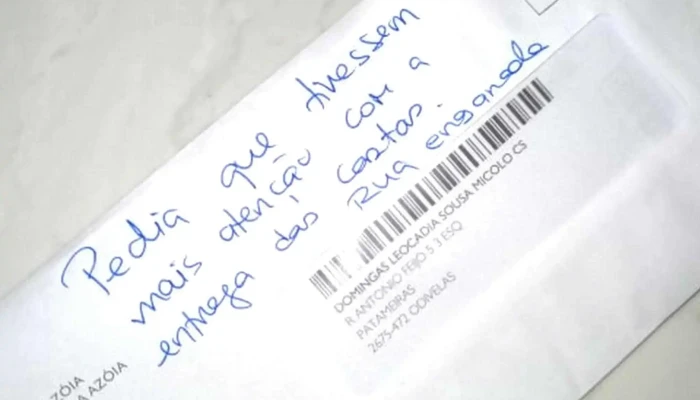 Pedia que tivessem
mais atenção com a
entrega das cartas.
Rua enganada
DOMINGAS LEOCADIA SOUSA MICOLO CS
R ANTONIO FEIJO 5 3 ESQ
PATAMEIRAS
2675-472 ODIVELAS
AZÓIA
A AZÓIA